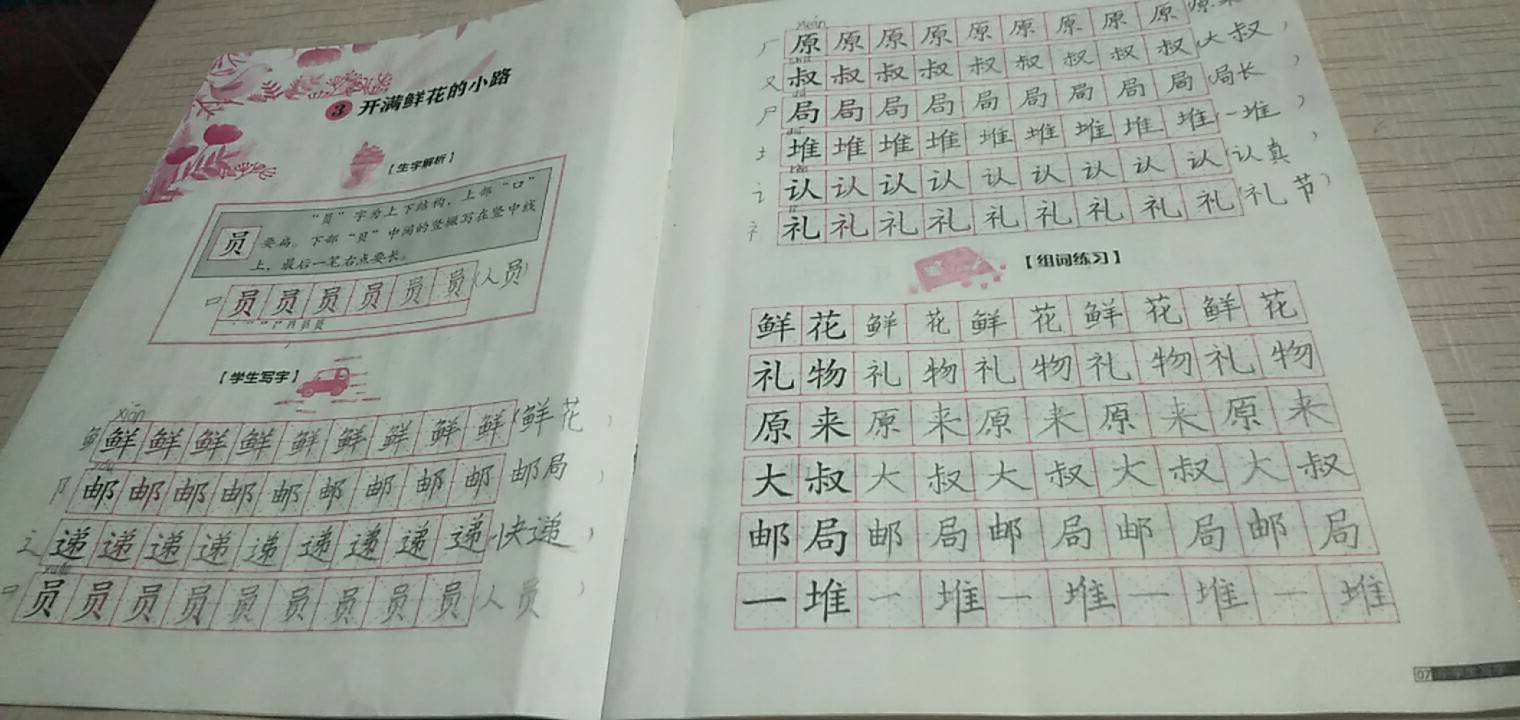 3 开满鲜花的小路
【生字解析】
“员”字为上下结构，上部“口”
员 要扁。下部“贝”中间的竖撇写在竖中线
上，最后一笔右点要长。
口 员 员 员 员 员 员 (人员)
【学生写字】
xiān
鱼 鲜 鲜 鲜 鲜 鲜 鲜 鲜 鲜 鲜 (鲜花 )
阝 邮 邮 邮 邮 邮 邮 邮 邮 邮 邮局 )
辶 递 递 递 递 递 递 递 递 递 快递 )
口 员 员 员 员 员 员 员 员 员 人员 )
厂 原 原 原 原 原 原 原 原 原 (原来
又 叔 叔 叔 叔 叔 叔 叔 叔 叔 (大叔 )
尸 局 局 局 局 局 局 局 局 局 (局长 )
土 堆 堆 堆 堆 堆 堆 堆 堆 堆 (一堆 )
讠 认 认 认 认 认 认 认 认 认 (认真 )
礻 礼 礼 礼 礼 礼 礼 礼 礼 礼 (礼节 )
【组词练习】
鲜 花 鲜 花 鲜 花 鲜 花 鲜 花
礼 物 礼 物 礼 物 礼 物 礼 物
原 来 原 来 原 来 原 来 原 来
大 叔 大 叔 大 叔 大 叔 大 叔
邮 局 邮 局 邮 局 邮 局 邮 局
一 堆 一 堆 一 堆 一 堆 一 堆
07